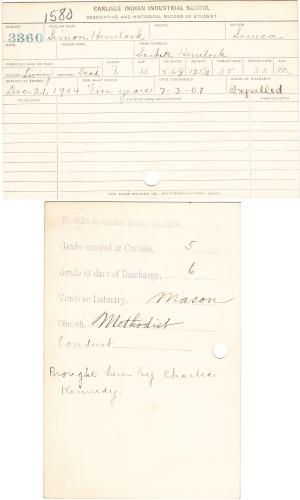 1580
CARLISLE INDIAN INDUSTRIAL SCHOOL
DESCRIPTIVE AND HISTORICAL RECORD OF STUDENT
NUMBER ENGLISH NAME AGENCY NATION
3360 Simon Hemlock Seneca
INDIAN NAME HOME ADDRESS
Hemlock
PARENTS LIVING OR DEAD BLOOD AGE HEIGHT WEIGHT FORCED INSP. FORCED EXPR. SEX
FATHER Living MOTHER Dead F. 15 5-6½ 125½ 35 33 M
ARRIVED AT SCHOOL FOR WHAT PERIOD DATE DISCHARGED CAUSE OF DISCHARGE
Dec. 21, 1904 Five years 7-3-07 Expelled
TO COUNTRY PATRONS NAME AND ADDRESS FROM COUNTRY
Months in school before Carlisle,
Grade entered at Carlisle, 5
Grade at date of Discharge, 6
Trade or Industry, Mason
Church, Methodist
Conduct
Brought here by Charles
Kennedy.